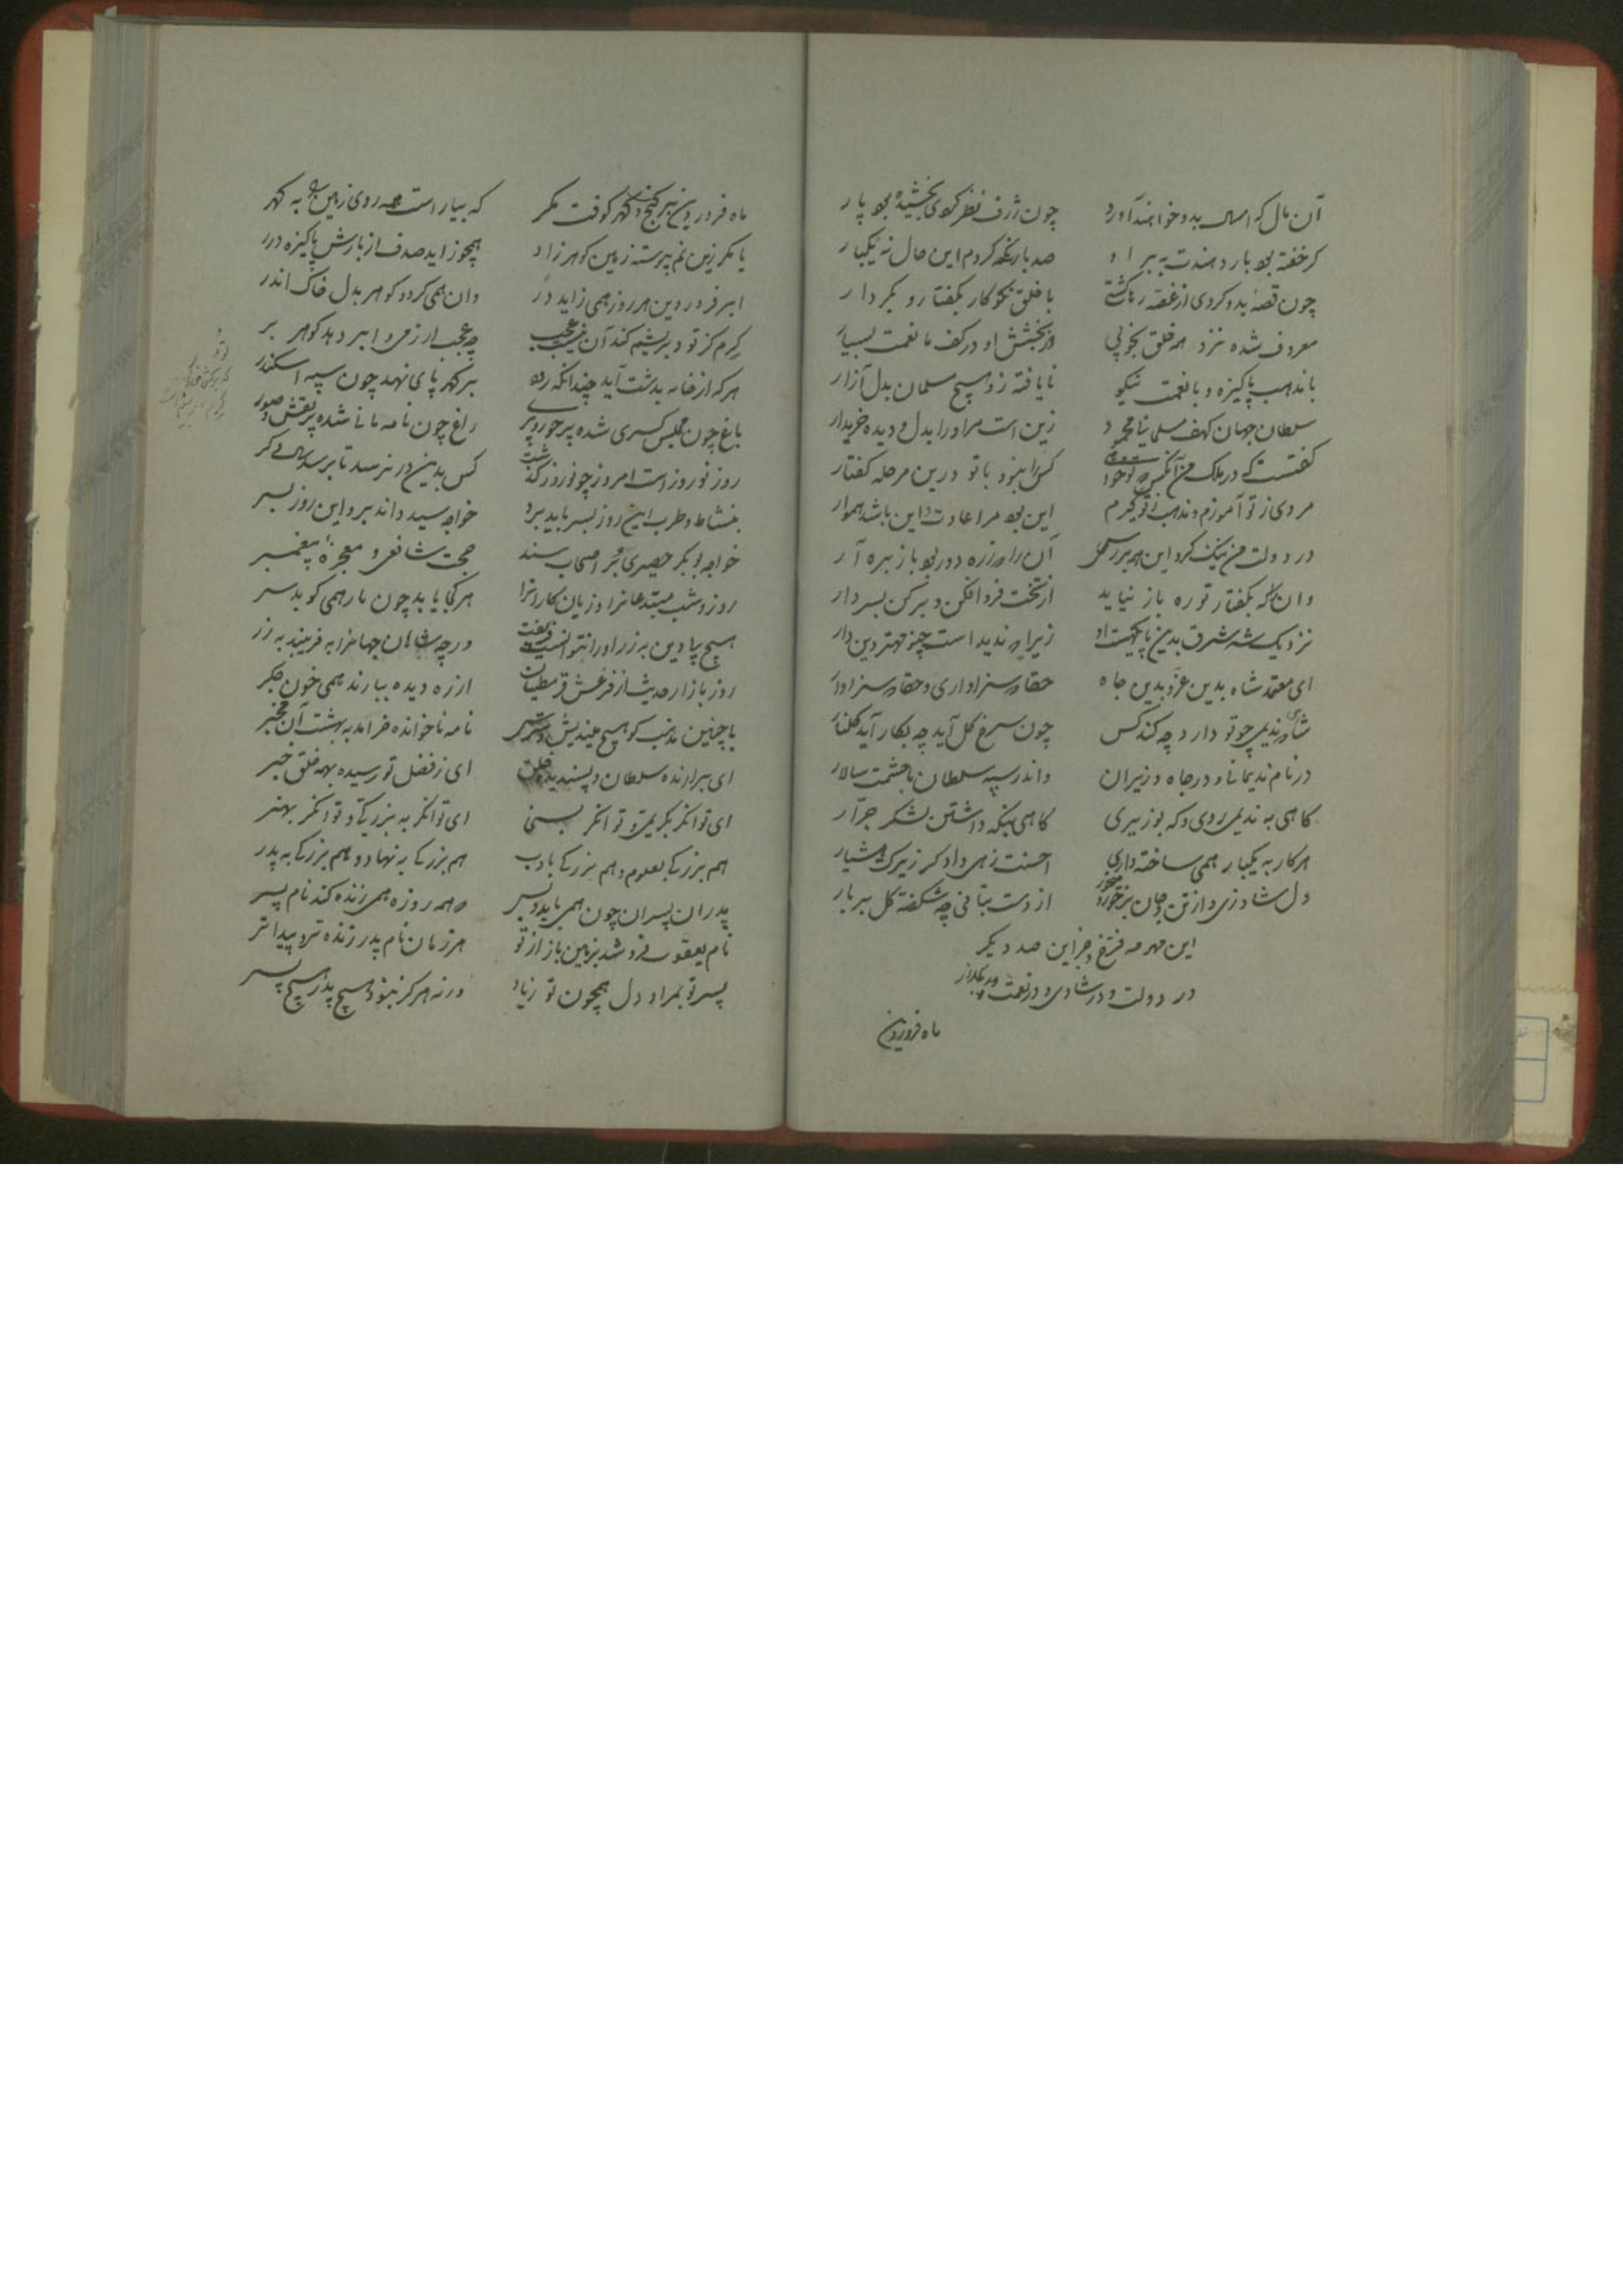 آن مال که امسال بدو خواهند آورد
چون ژرف نظر کوی بخشیده بود پار
کر خفته بود بار دهندت ببر او
صد بار نکه کردم این حال نه یکبار
چون قصه بدو کردی از غصه رها کشتی
با خلق نکو کار بکفتار و بکردار
معروف شده نزد همه خلق بخوبی
در بخشش او در کف ما نعمت بسیار
با مذهب پاکیزه و با نعمت نیکو
نایافته زو هیچ مسلمان بدل آزار
سلطان جهان کهف مسلمانی محمود
زین است مر او را بدل و دیده خریدار
کفتست که در ملک من آنکس که تو خواهی
کس را نبود با تو درین مرحله کفتار
مردی ز تو آموزم و مذهب ز تو کیرم
این بود مرا عادت و این باشد هموار
در دولت من نیک کرد این
آن را که ز ره دور بود باز بره آر
وان را که بکفتار تو ره باز نیاید
از تخت فرو افکن و برکن بسر دار
نزدیک شه شرق بدین پایکه است او
زیرا که ندید است چنو مهتر دین دار
ای معتمد شاه بدین عز و بدین جاه
حقا که سزاواری و حقا که سزاوار
شاهی که ندیمی چو تو دارد چه کند کس
چون سرخ کل آید چه بکار آید کلنار
در نام ندیمانی و در جاه وزیران
واندر سپه سلطان با حشمت سالار
کاهی به ندیمی روی و که بوزیری
کاهی بنکه داشتن لشکر جرار
هر کار به یکبار همی ساخته داری
احسنت زهی دادکر زیرک هشیار
دل شاد زی و از تن و جان برخور و می خور
از دست بتانی چه شکفته کل بر بار
این مهرمه فرخ و جز این صد دیکر
در دولت و در شادی و در نعمت بکذار
ماه فروردین
ماه فروردین بر کنج کهر کوفت مکر
که بیاراست همه روی زمین را به کهر
یا مکر زین نم پیوسته زمین کوهر زاد
همچو زاید صدف از بارش پاکیزه درر
ابر فروردین هر روز همی زاید در
وان همی کردد کوهر بدل خاک اندر
کرم کز تود بریشم کند آن نیست عجب
چه عجب ار زمی و ابر دهد کوهر بر
هر که از خانه بدشت آید چندانکه رود
بر کهر پای نهد چون سپه اسکندر
باغ چون مجلس کسری شده پر حور و پری
راغ چون نامه مانا شده پر نقش و صور
روز نوروز است امروز چو نوروز کذشت
کس بدین در نرسد تا برسد سال دکر
بنشاط و طرب این روز بسر باید برد
خواجه سید داند برد این روز بسر
خواجه بوبکر حصیری اصحاب سند
حجت شافعی و معجزه پیغمبر
روز و شب مبتدعانرا و زیان کارانرا
هر کجا یابد چون مار همی کوبد سر
هیچ بیدین به زر او را نتوانست فریفت
ور چه شاهان جهانرا به فریبند به زر
روز بازار حدیثش از فزعش قرمطیان
از ره دیده ببارند همی خون جکر
با چنین مذهب کو هیچ میندیش و مترس
نامه ناخوانده خرامد به بهشت آن مخبر
ای برارنده سلطان و پسندیده خلق
ای ز فضل تو رسیده بهمه خلق خبر
ای توانکر بکریمی و توانکر بسخی
ای توانکر به بزرکی و توانکر بهنر
هم بزرکی بعلوم و هم بزرکی بادب
هم بزرکی به نهاد و هم بزرکی به پدر
پدران پسران چون همی باید و بس
که همه روزه همی زنده کند نام پسر
نام یعقوب فرو شد بزمین باز از تو
هر زمان نام پدر زنده تر و پیداتر
پسر تو بمراد دل همچون تو زیاد
ورنه هرکز نبود هیچ پدر هیچ پسر